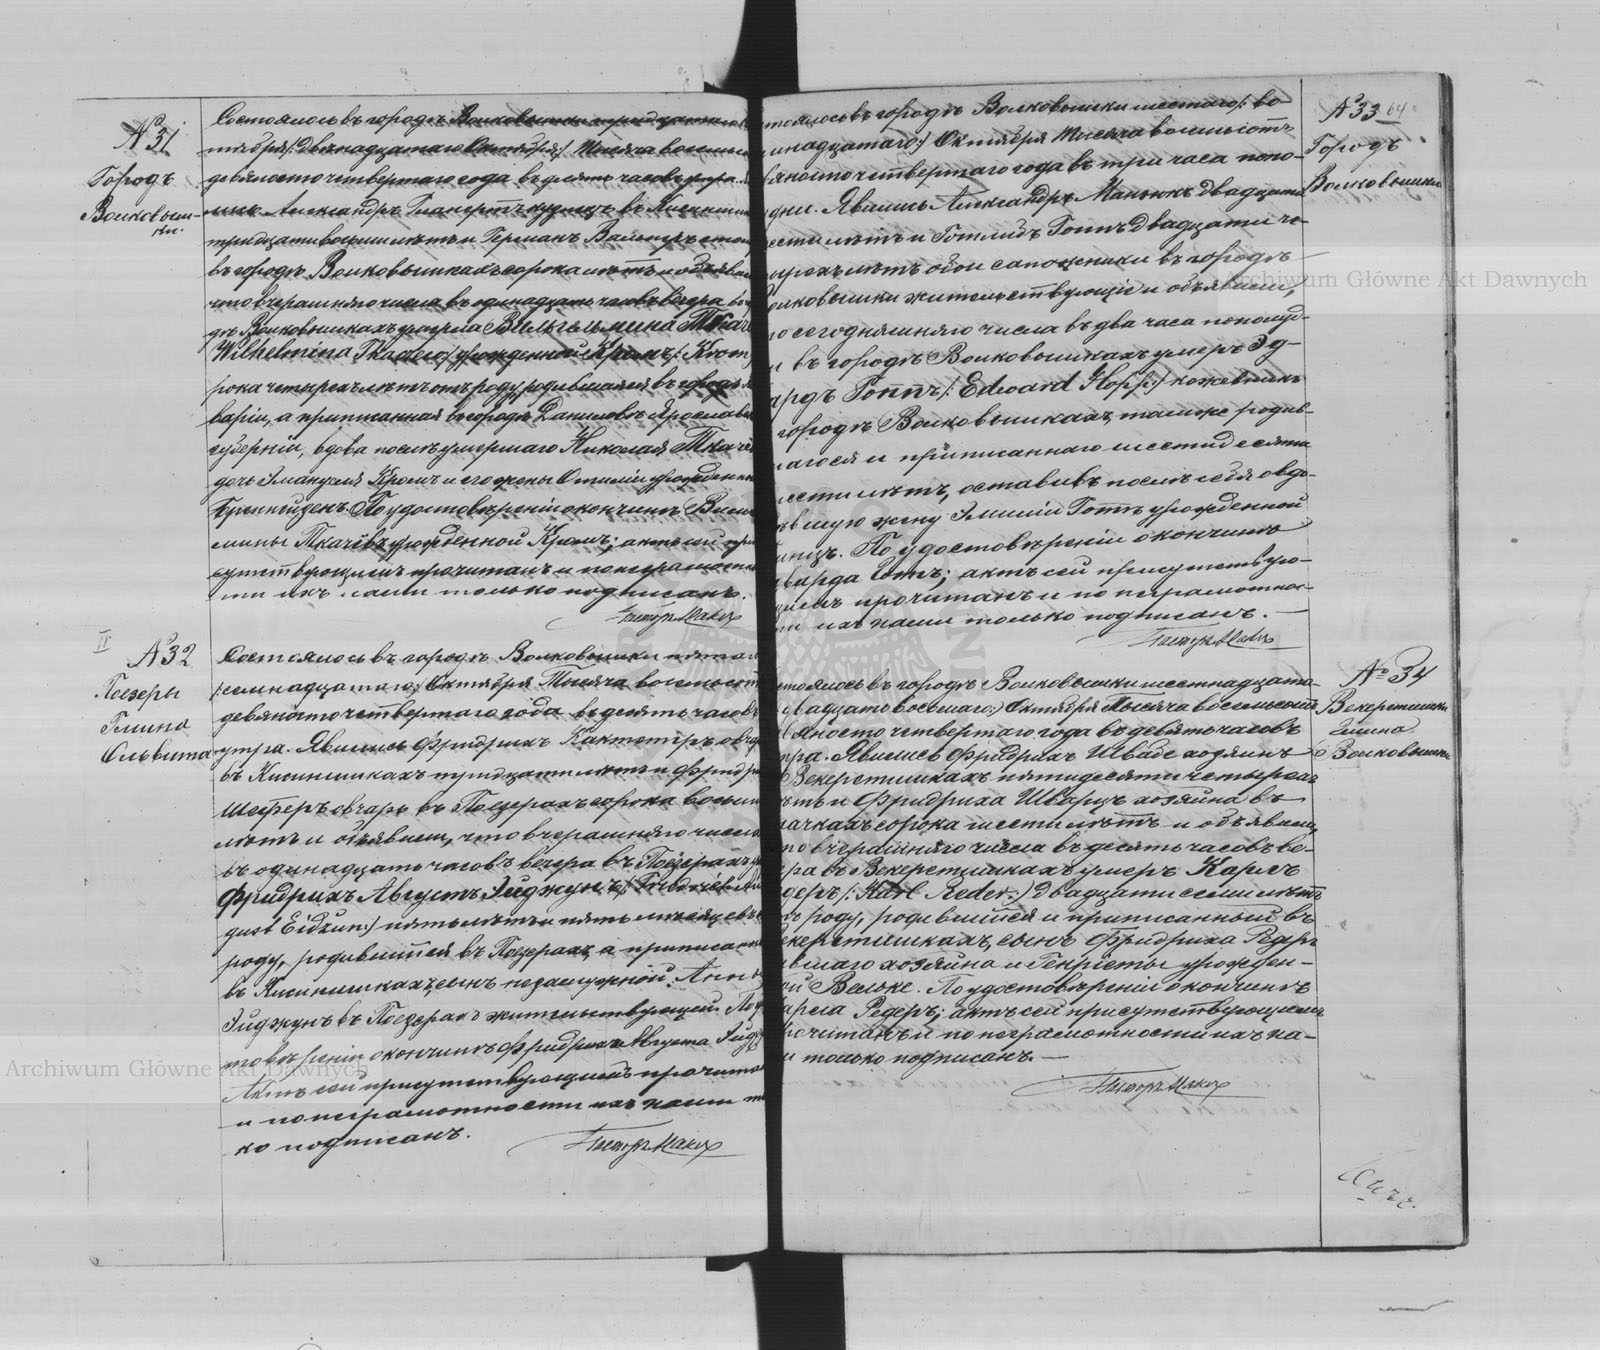 № 31
Городъ
Волковыш-
ки.
Состоялось въ городѣ Волковышки тридцатаго
тября /:двѣнадцатаго Октября:/ Тысяча восемь
девяносто четвертаго года въ девять часовъ утра.
Александръ кузнецъ въ
тридцати восьми лѣтъ и Германъ
въ городѣ Волковышкахъ сорока лѣтъ и объявили
что вчерашняго числа въ одинадцать часовъ вечера въ
дѣ Волковышкахъ умерла Вильгельмина Ткач
Wilhelmina Tkaczew/ урожденной Кромъ /: Krom
рока четырехъ лѣтъ отъ роду, родившаяся въ городѣ
варіи, а приписанная въ городѣ Даниловѣ Ярославс
губерніи, вдова послѣ умершаго Николая Ткаче
дочь Эмануеля Кромъ и его жены Отиліи урожденн
По удостовѣреніи о кончинѣ Вильг
мины Ткачевъ урожденной Кромъ; актъ сей при
сутствующимъ прочитанъ и по неграмотно
сти ихъ нами только подписанъ.
Пасторъ
II
№ 32
Поезеры
Гмина
Ольвита
Состоялось въ городѣ Волковышки пятаго
/:семнадцатаго:/ Октября Тысяча восемьсотъ
девяносто четвертаго года въ десять часовъ
утра. Явились Фридрихъ овчарь
въ тридцати лѣтъ и Фридри
Шеферъ овчарь въ Поезерахъ сорока восьми
лѣтъ и объявили, что вчерашняго числа
въ одинадцать часовъ вечера въ Поезерахъ у
Фридрихъ Августъ Эйджунъ /: Friedrich Au
gust Eidzun:/ пять лѣтъ и пять мѣсяцевъ
роду, родившійся въ Поезерахъ, а приписан
въ сынъ незамужной Анны
Эйджунъ въ Поезерахъ жительствующей. По удо
стовѣреніи о кончинѣ Фридриха Августа Эйдж
Актъ сей присутствующимъ прочита
и по неграмотности ихъ нами то
ко подписанъ.
Пасторъ
№ 33 64
Городъ
Волковышки
стоялось въ городѣ Волковышки шестаго /: во
мнадцатаго:/ Октября Тысяча восемьсотъ
вяносто четвертаго года въ три часа попо-
дни. Явились Александръ двадцати
шести лѣтъ и Готлибъ Гоппъ двадцати че-
тырехъ лѣтъ обои сапожники въ городѣ
олковышки жительствующіе и объявили,
о сегодняшняго числа въ два часа пополуд-
и въ городѣ Волковышкахъ умеръ Эд-
ардъ Гоппъ /: Edward Hopp:/ кожевникъ
городѣ Волковышкахъ, тамже родив-
шагося и приписаннаго шестидесяти
шести лѣтъ, оставивъ послѣ себя овдо-
вѣвшую жену Эмилію Гоппъ урожденной
По удостовѣреніи о кончинѣ
дварда Гоппъ; актъ сей присутствую-
щимъ прочитанъ и по неграмотнос-
ти ихъ нами только подписанъ. —
Пасторъ
№ 34
Векеротишки
Гмина
Волковышки
стоялось въ городѣ Волковышки шестнадцата-
двадцать восьмаго:/ Октября Тысяча восемьсотъ
вяносто четвертаго года въ девять часовъ
тра. Явились Фридрихъ Швабе хозяинъ
Векеротишкахъ пятидесяти четырехъ
лѣтъ и Фридриха Шварцъ хозяина въ
сорока шести лѣтъ и объявили,
то вчерашняго числа въ десять часовъ ве-
ера въ Векеротишкахъ умеръ Карлъ
едеръ /: Karl Reder:/ двадцати семи лѣтъ
ъ роду, родившійся и приписанный въ
екеротишкахъ, сынъ Фридриха Редеръ
вшаго хозяина и Генріеты урожден-
ой Вельке. По удостовѣреніи о кончинѣ
арла Редеръ; актъ сей присутствующимъ
рочитанъ и по неграмотности ихъ на-
и только подписанъ. —
Пасторъ
Archiwum Główne Akt Dawnych
Archiwum Główne Akt Dawnych